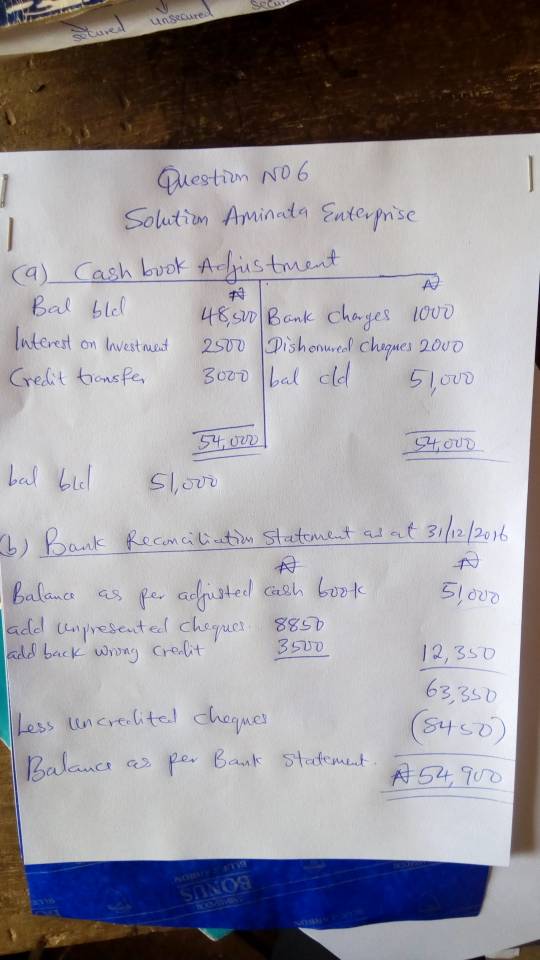 secured unsecured
Question NO 6
Solution Aminata Enterprise
(a) Cash book Adjustment
₦ ₦
Bal b/d 48,500 Bank Charges 1000
Interest on Investment 2500 Dishonured Cheques 2000
Credit transfer 3000 bal c/d 51,000
54,000 54,000
bal b/d 51,000
(b) Bank Reconciliation Statement as at 31/12/2016
₦ ₦
Balance as per adjusted cash book 51,000
add unpresented cheques 8850
add back wrong credit 3500 12,350
63,350
Less uncredited cheques (8450)
Balance as per Bank Statement. ₦54,900
BONUS